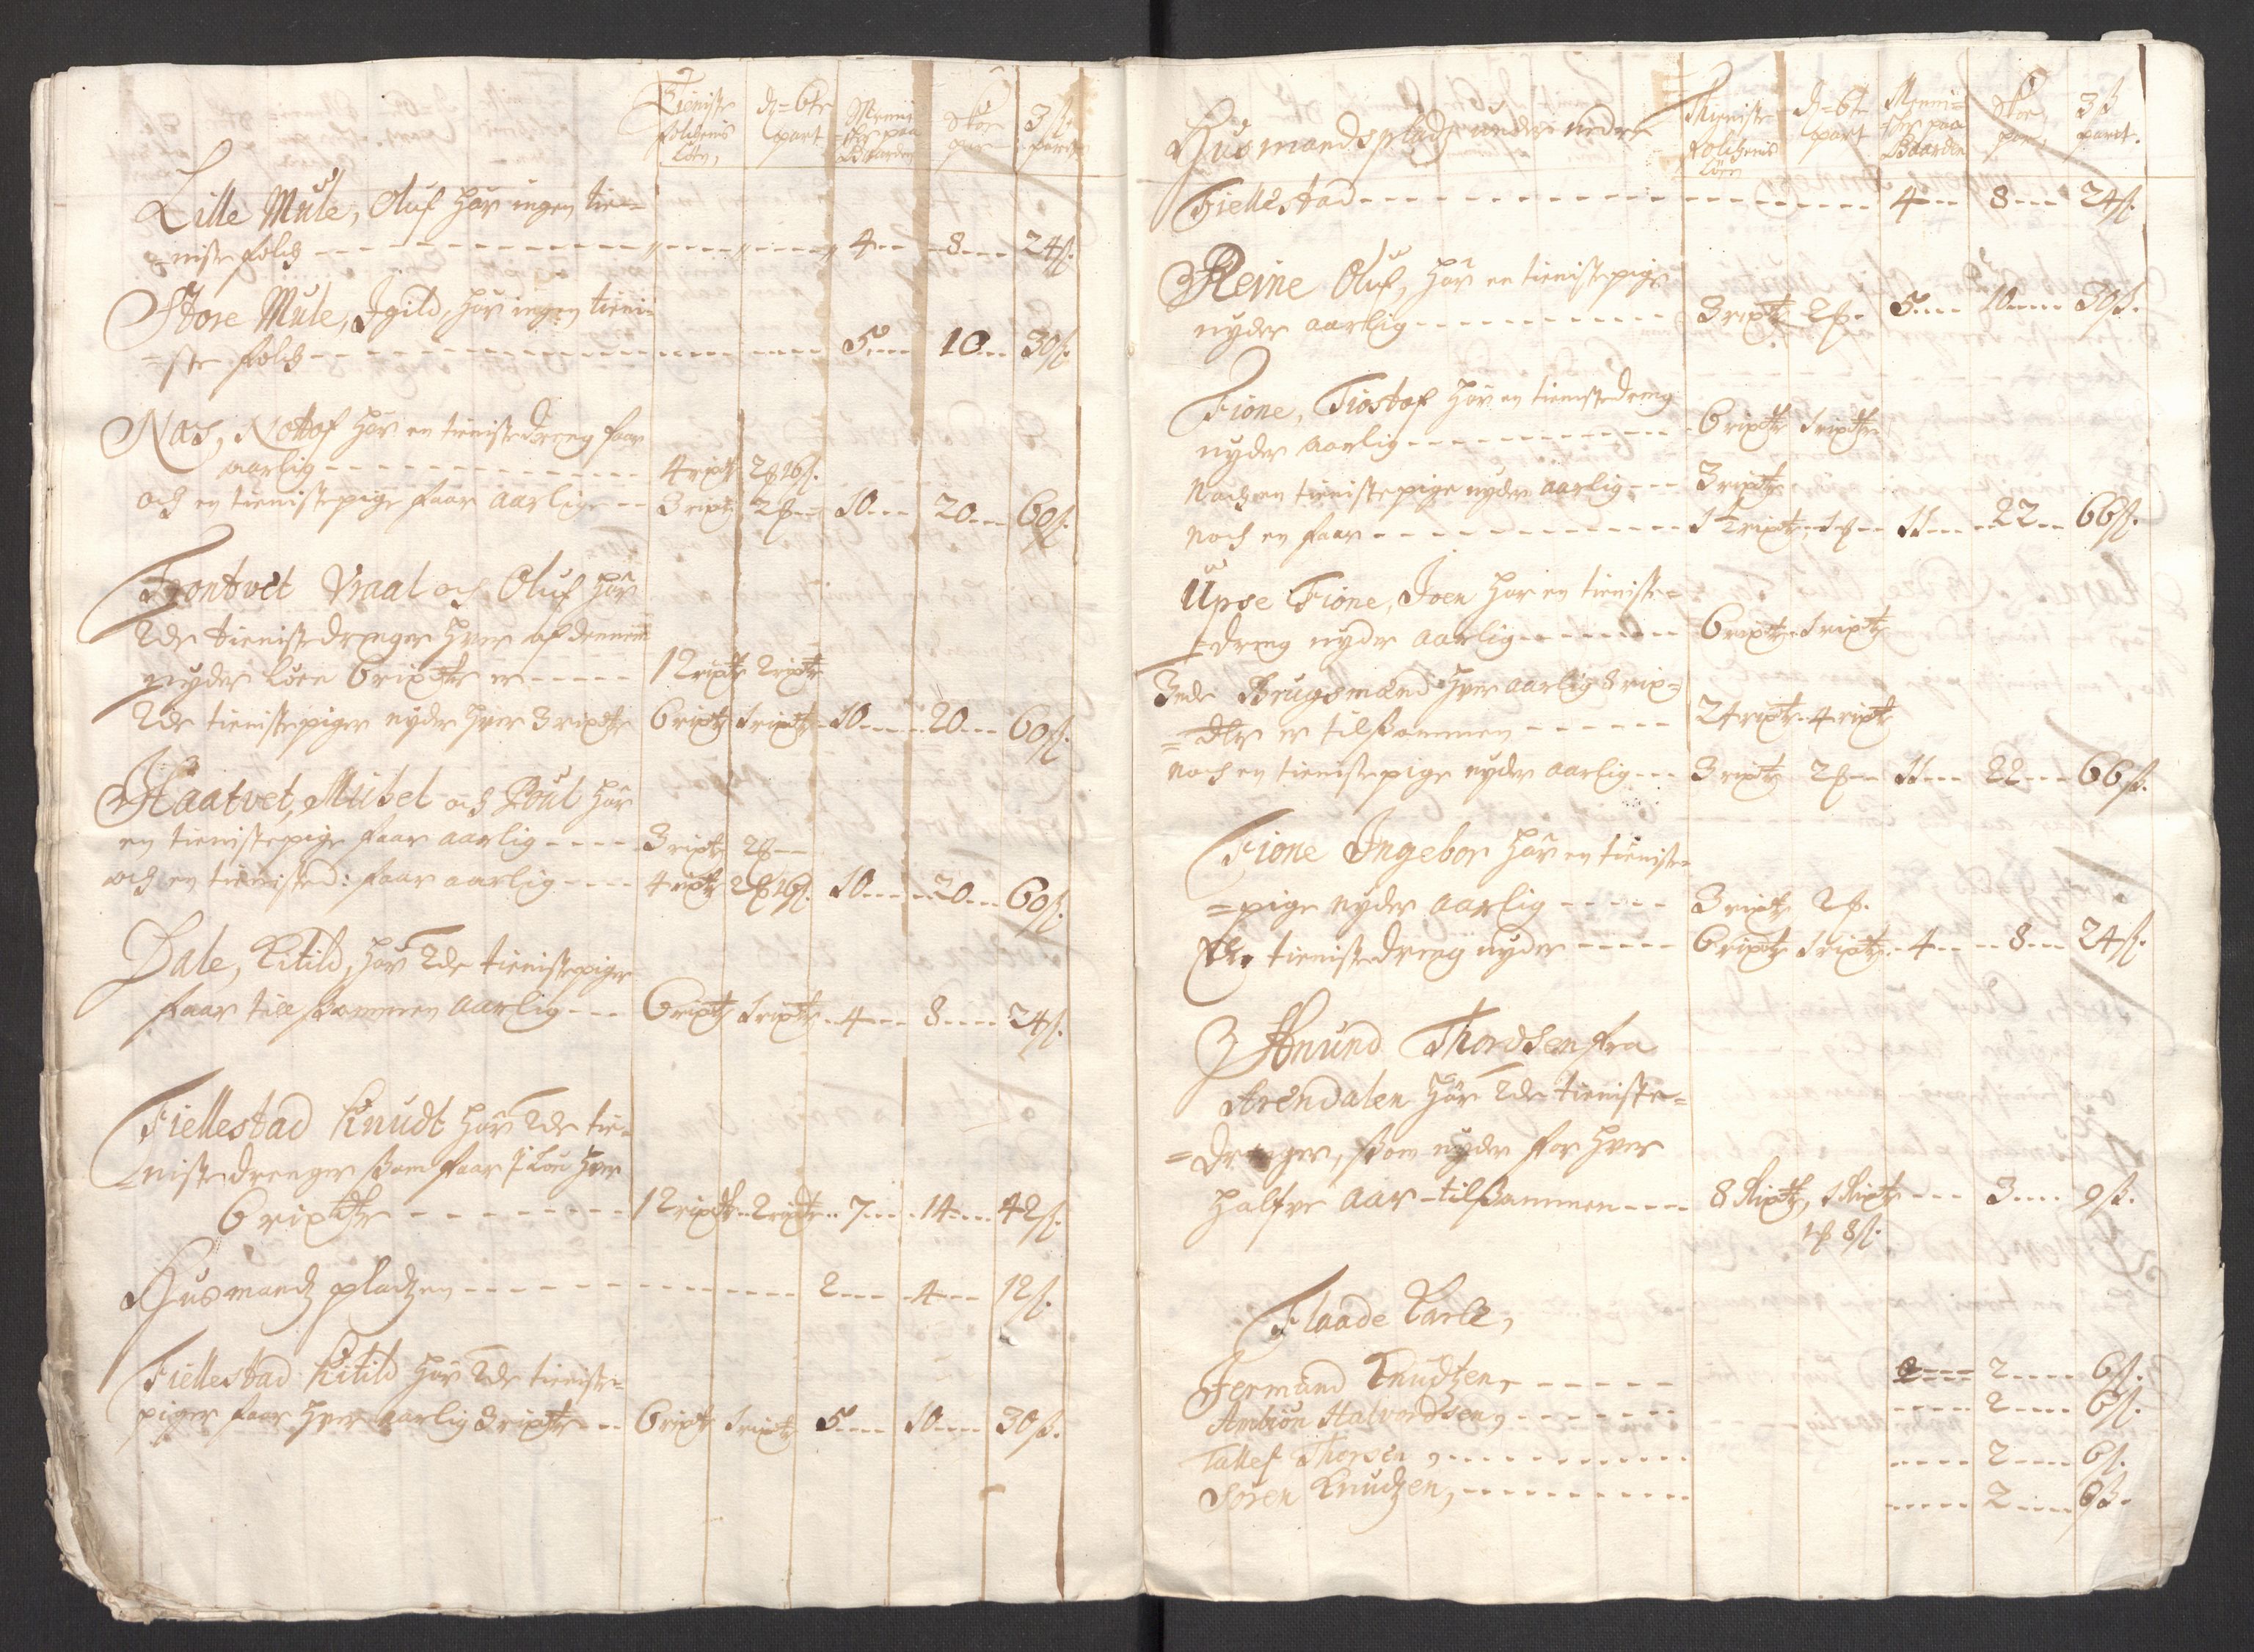 Tieniste d. 6te Menni= Skoe 3 ß
folchens part =sker paa par pardt
Løn, Gaarden
Lille Mule, Oluf har ingen tie=
=niste folch 4 8 24 ß.
Store Mule, Igild, har ingen tieni=
=ste folch 5 10 30 ß.
Nas, Nottof har en tienistedreng faar
aarlig 4 rixdr 2 16 ß.
och en tienistepige faar aarlige 3 rixdr 2 10 20 60 ß.
Frontvet Vraal och Oluf har
2de tienistedrenger hver af dennem
nyder løen 6 rixdr er 12 rixdr 2 rixdr
2de tienistepiger nyder hver 3 rixdr 6 rixdr 1 rixdr 10 20 60 ß.
Haatvet, Mickel och Poul har
en tienistepige faar aarlig 3 rixdr 2
och en tienisted: faar aarlig 4 rixdr 2 16 ß. 10 20 60 ß.
Dale, Kitild, har 2de tienistepiger
faar till sammen aarlig 6 rixdr 1 rixdr 4 8 24 ß.
Fiellestad Knudt har 2de tie=
=nistedrenger som faar i løn hver
6 rixdr 12 rixdr 2 rixdr 7 14 42 ß.
Husmandz pladzen 2 4 12 ß.
Fiellestad Kitild har 2de tieniste=
piger faar hver aarlig 3 rixdr 6 rixdr 1 rixdr 5 10 30 ß.
Husmandsplads under nedre Tieniste d. 6te Menni= Skoe 3 ß
folchens part =sker paa par, pardt.
Løen Gaarden
Fiellestad 4 8 24 ß.
Reine Oluf, har en tienistepige
nyder aarlig 3 rixdr 2 5 10 30 ß.
Fione, Tiostof har en tienistedreng
nyder aarlig 6 rixdr 1 rixdr
Noch en tienistepige nyder aarlig 3 rixdr
noch en faar 1½ rixdr 1 11 22 66 ß.
Upse Fione, Joen har en tieniste=
=dreng nyder aarlig 6 rixdr 1 rixdr
3nde Brugsmænd hver aarlig 8 rix=
=dlr er tilsammen 24 rixdr 4 rixdr
Noch en tienistepige nyder aarlig 3 rixdr 2 11 22 66 ß.
Fione Ingebor har en tieniste=
=pige nyder aarlig 3 rixdr 2
En tienistedreng nyder 6 rixdr 1 rixdr 4 8 24 ß.
Anund Thordsen fra
Arendalen har 2de tieniste=
=drenger, som nyder for hver
halfve aar tilsammen 8 Rixdr, 1 Rixdr 3 9 ß.
1 8 ß.
Flaade Karle,
Jermund Knudtzen, 2 6 ß.
Ambiön Halvordsen, 2 6 ß.
Tallef Thorsen, 2 6 ß.
Sören Knudzen, 2 6 ß.